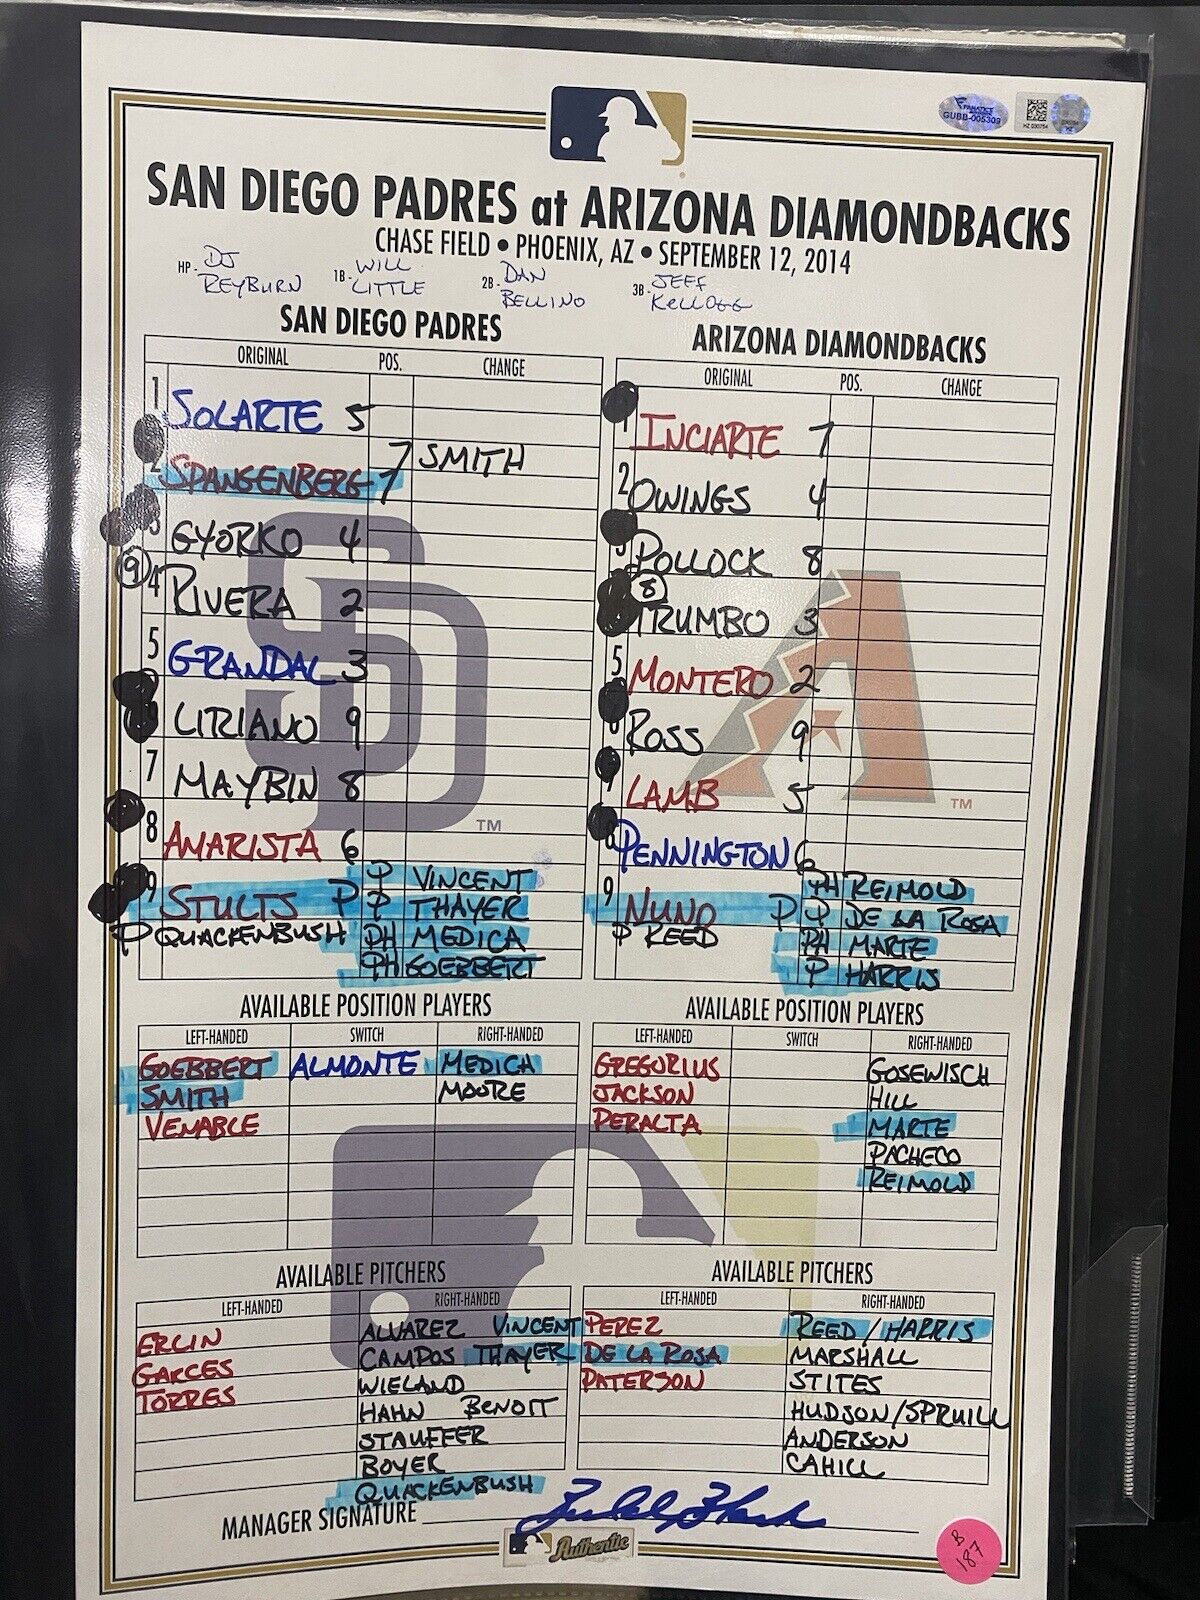 FANATICS
GUBB-005309
HZ 030754
SAN DIEGO PADRES at ARIZONA DIAMONDBACKS
CHASE FIELD • PHOENIX, AZ • SEPTEMBER 12, 2014
HP - DJ REYBURN 1B - WILL LITTLE 2B - DAN BELLINO 3B - JEFF KELLOGG
SAN DIEGO PADRES
ORIGINAL POS. CHANGE
1 SOLARTE 5
2 SPANGENBERG 7 7 SMITH
3 GYORKO 4
9 4 RIVERA 2
5 GRANDAL 3
LIRIANO 9
7 MAYBIN 8
8 AMARISTA 6
9 STULTS P P VINCENT
P THAYER
P QUACKENBUSH PH MEDICA
PH GOEBBERT
ARIZONA DIAMONDBACKS
ORIGINAL POS. CHANGE
1 INCIARTE 7
2 OWINGS 4
3 POLLOCK 8
8 TRUMBO 3
5 MONTERO 2
6 ROSS 9
7 LAMB 5
8 PENNINGTON 6
9 NUNO P PH REIMOLD
P DE LA ROSA
P REED PH MARTE
P HARRIS
AVAILABLE POSITION PLAYERS
LEFT-HANDED SWITCH RIGHT-HANDED
GOEBBERT ALMONTE MEDICA
SMITH MOORE
VENABLE
AVAILABLE POSITION PLAYERS
LEFT-HANDED SWITCH RIGHT-HANDED
GREGORIUS GOSEWISCH
JACKSON HILL
PERALTA MARTE
PACHECO
REIMOLD
AVAILABLE PITCHERS
LEFT-HANDED RIGHT-HANDED
ERLIN ALVAREZ VINCENT
GARCES CAMPOS THAYER
TORRES WIELAND
HAHN BENOIT
STAUFFER
BOYER
QUACKENBUSH
AVAILABLE PITCHERS
LEFT-HANDED RIGHT-HANDED
PEREZ REED / HARRIS
DE LA ROSA MARSHALL
PATERSON STITES
HUDSON/SPRUILL
ANDERSON
CAHILL
MANAGER SIGNATURE
Authentic
B
187
TM
TM